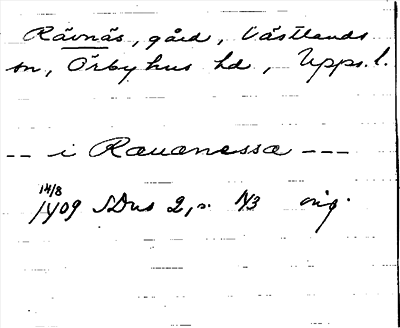 Rävnäs, gård, Västlands
sn, Örbyhus hd, Upps. l.
-- i Rauanessa ---
14/8
1409 SDns 2, s. 143 orig.